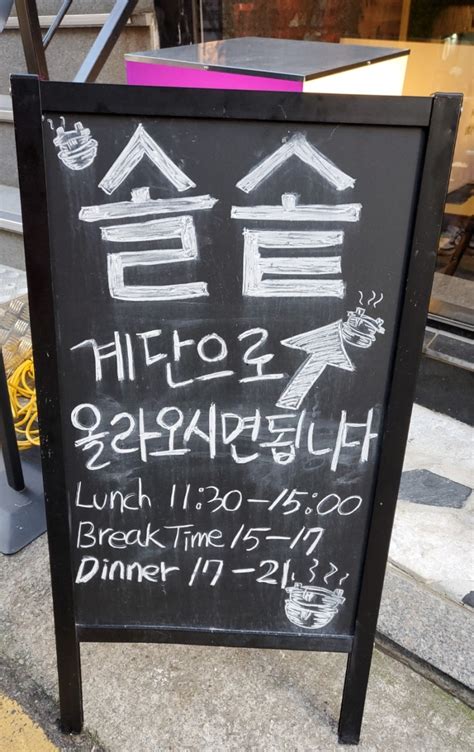 솔솥
계단으로
올라오시면됩니다
Lunch 11:30-15:00
Break Time 15-17
Dinner 17-21.